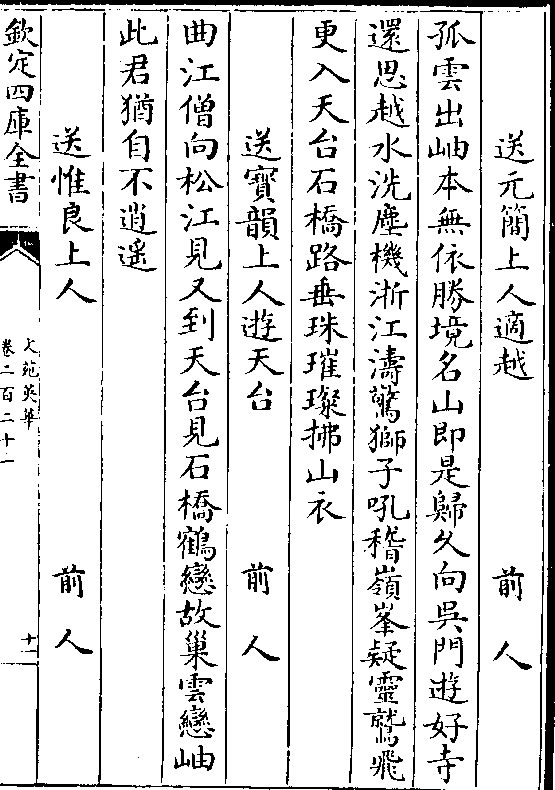 送元簡上人適越　前人
孤雲出岫本無依勝境名山即是歸久向吳門遊好寺
還思越水洗塵機浙江濤驚獅子吼稽嶺峯疑靈鷲飛
更入天台石橋路垂珠璀璨拂山衣
送寶韻上人遊天台　前人
曲江僧向松江見又到天台見石橋鶴戀故巢雲戀岫
此君猶自不逍遥
送惟良上人　前人
欽定四庫全書
文苑英華
卷二百二十一
十一